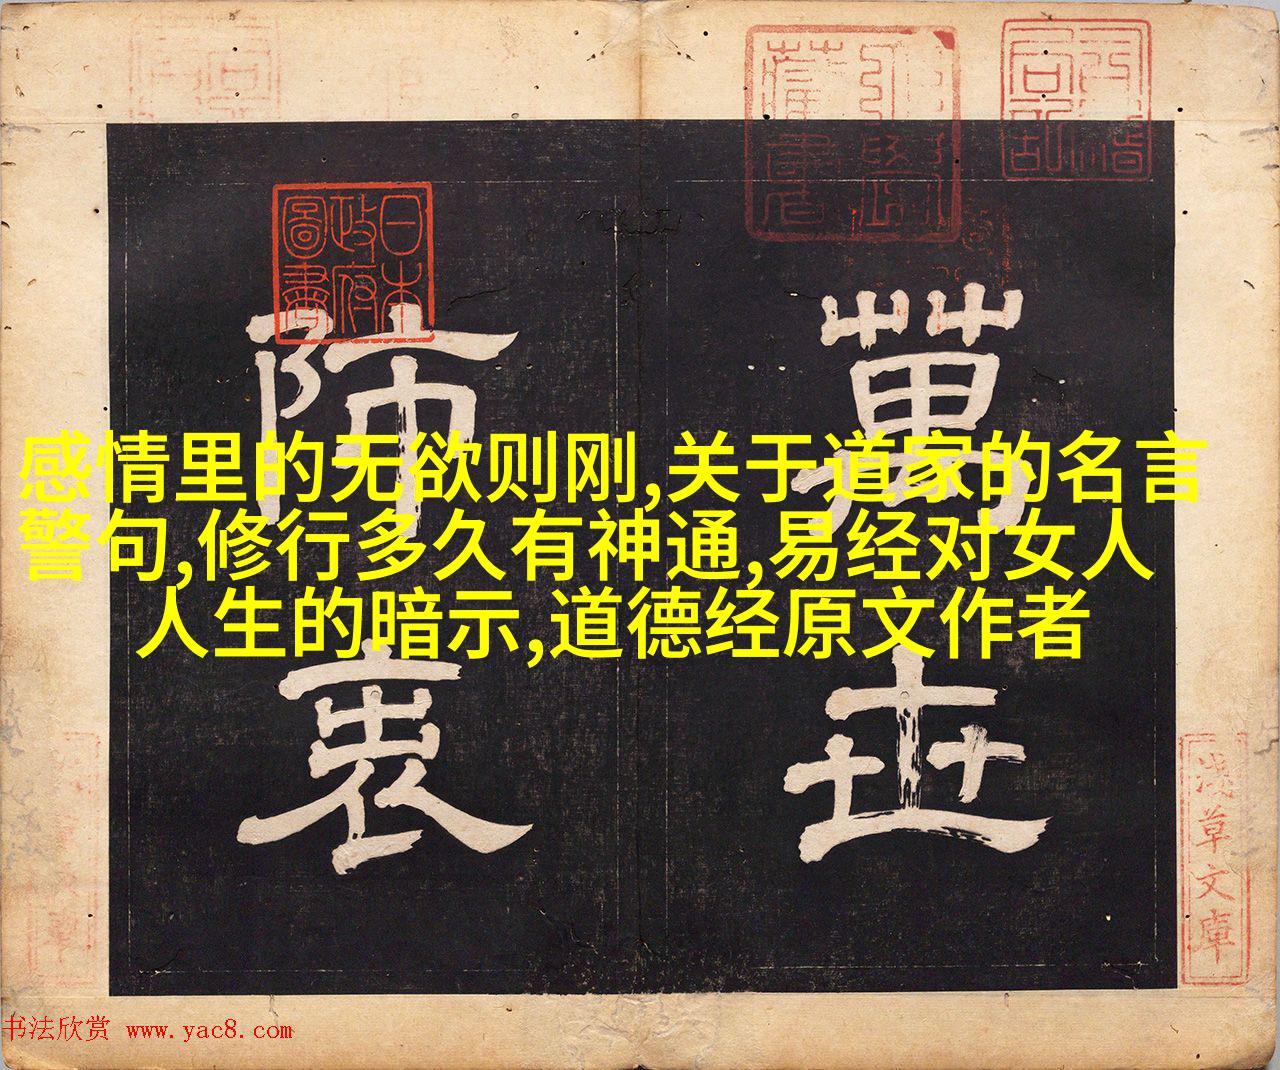 感情里的无欲则刚,关于道家的名言
警句,修行多久有神通,易经对女人
人生的暗示,道德经原文作者
萬世
師表
日本
政府
圖書
淺草文庫
书法欣赏 www.yac8.com